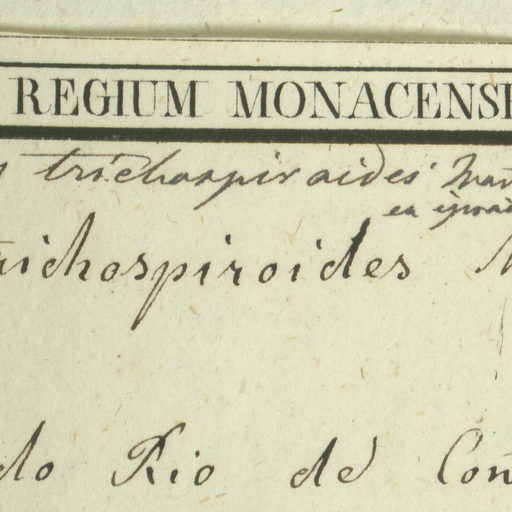 REGIUM MONACENSE
trichospiroides Mart
trichospiroides M
do Rio de Con